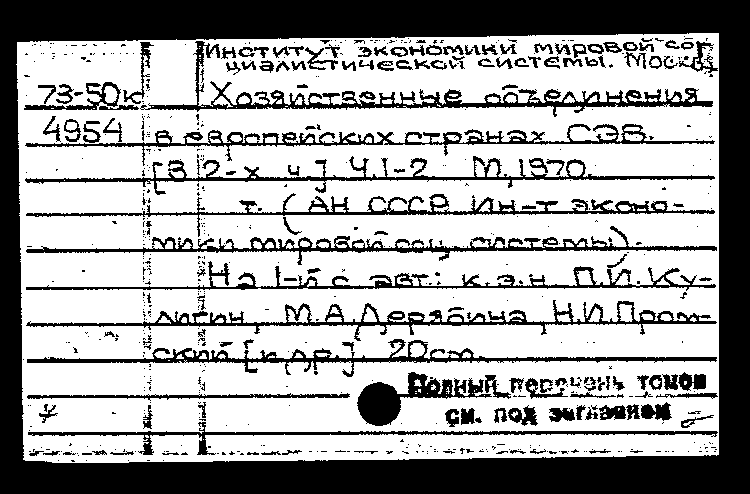 Институт экономики мировой со-
циалистической системы. Москва
73-50к Хозяйственные объединения
4954 в европейских странах СЭВ.
[В 2-х ч.] Ч.1-2 М., 1970.
т. (АН СССР. Ин-т эконо-
мики мировой соц. системы).
На 1-й с авт.: к.э.н. П.И. Ку-
лигин, М.А. Дерябина, Н.И. Пром-
ский [и др.]. 20 см.
Полный перечень томов
см. под заглавием